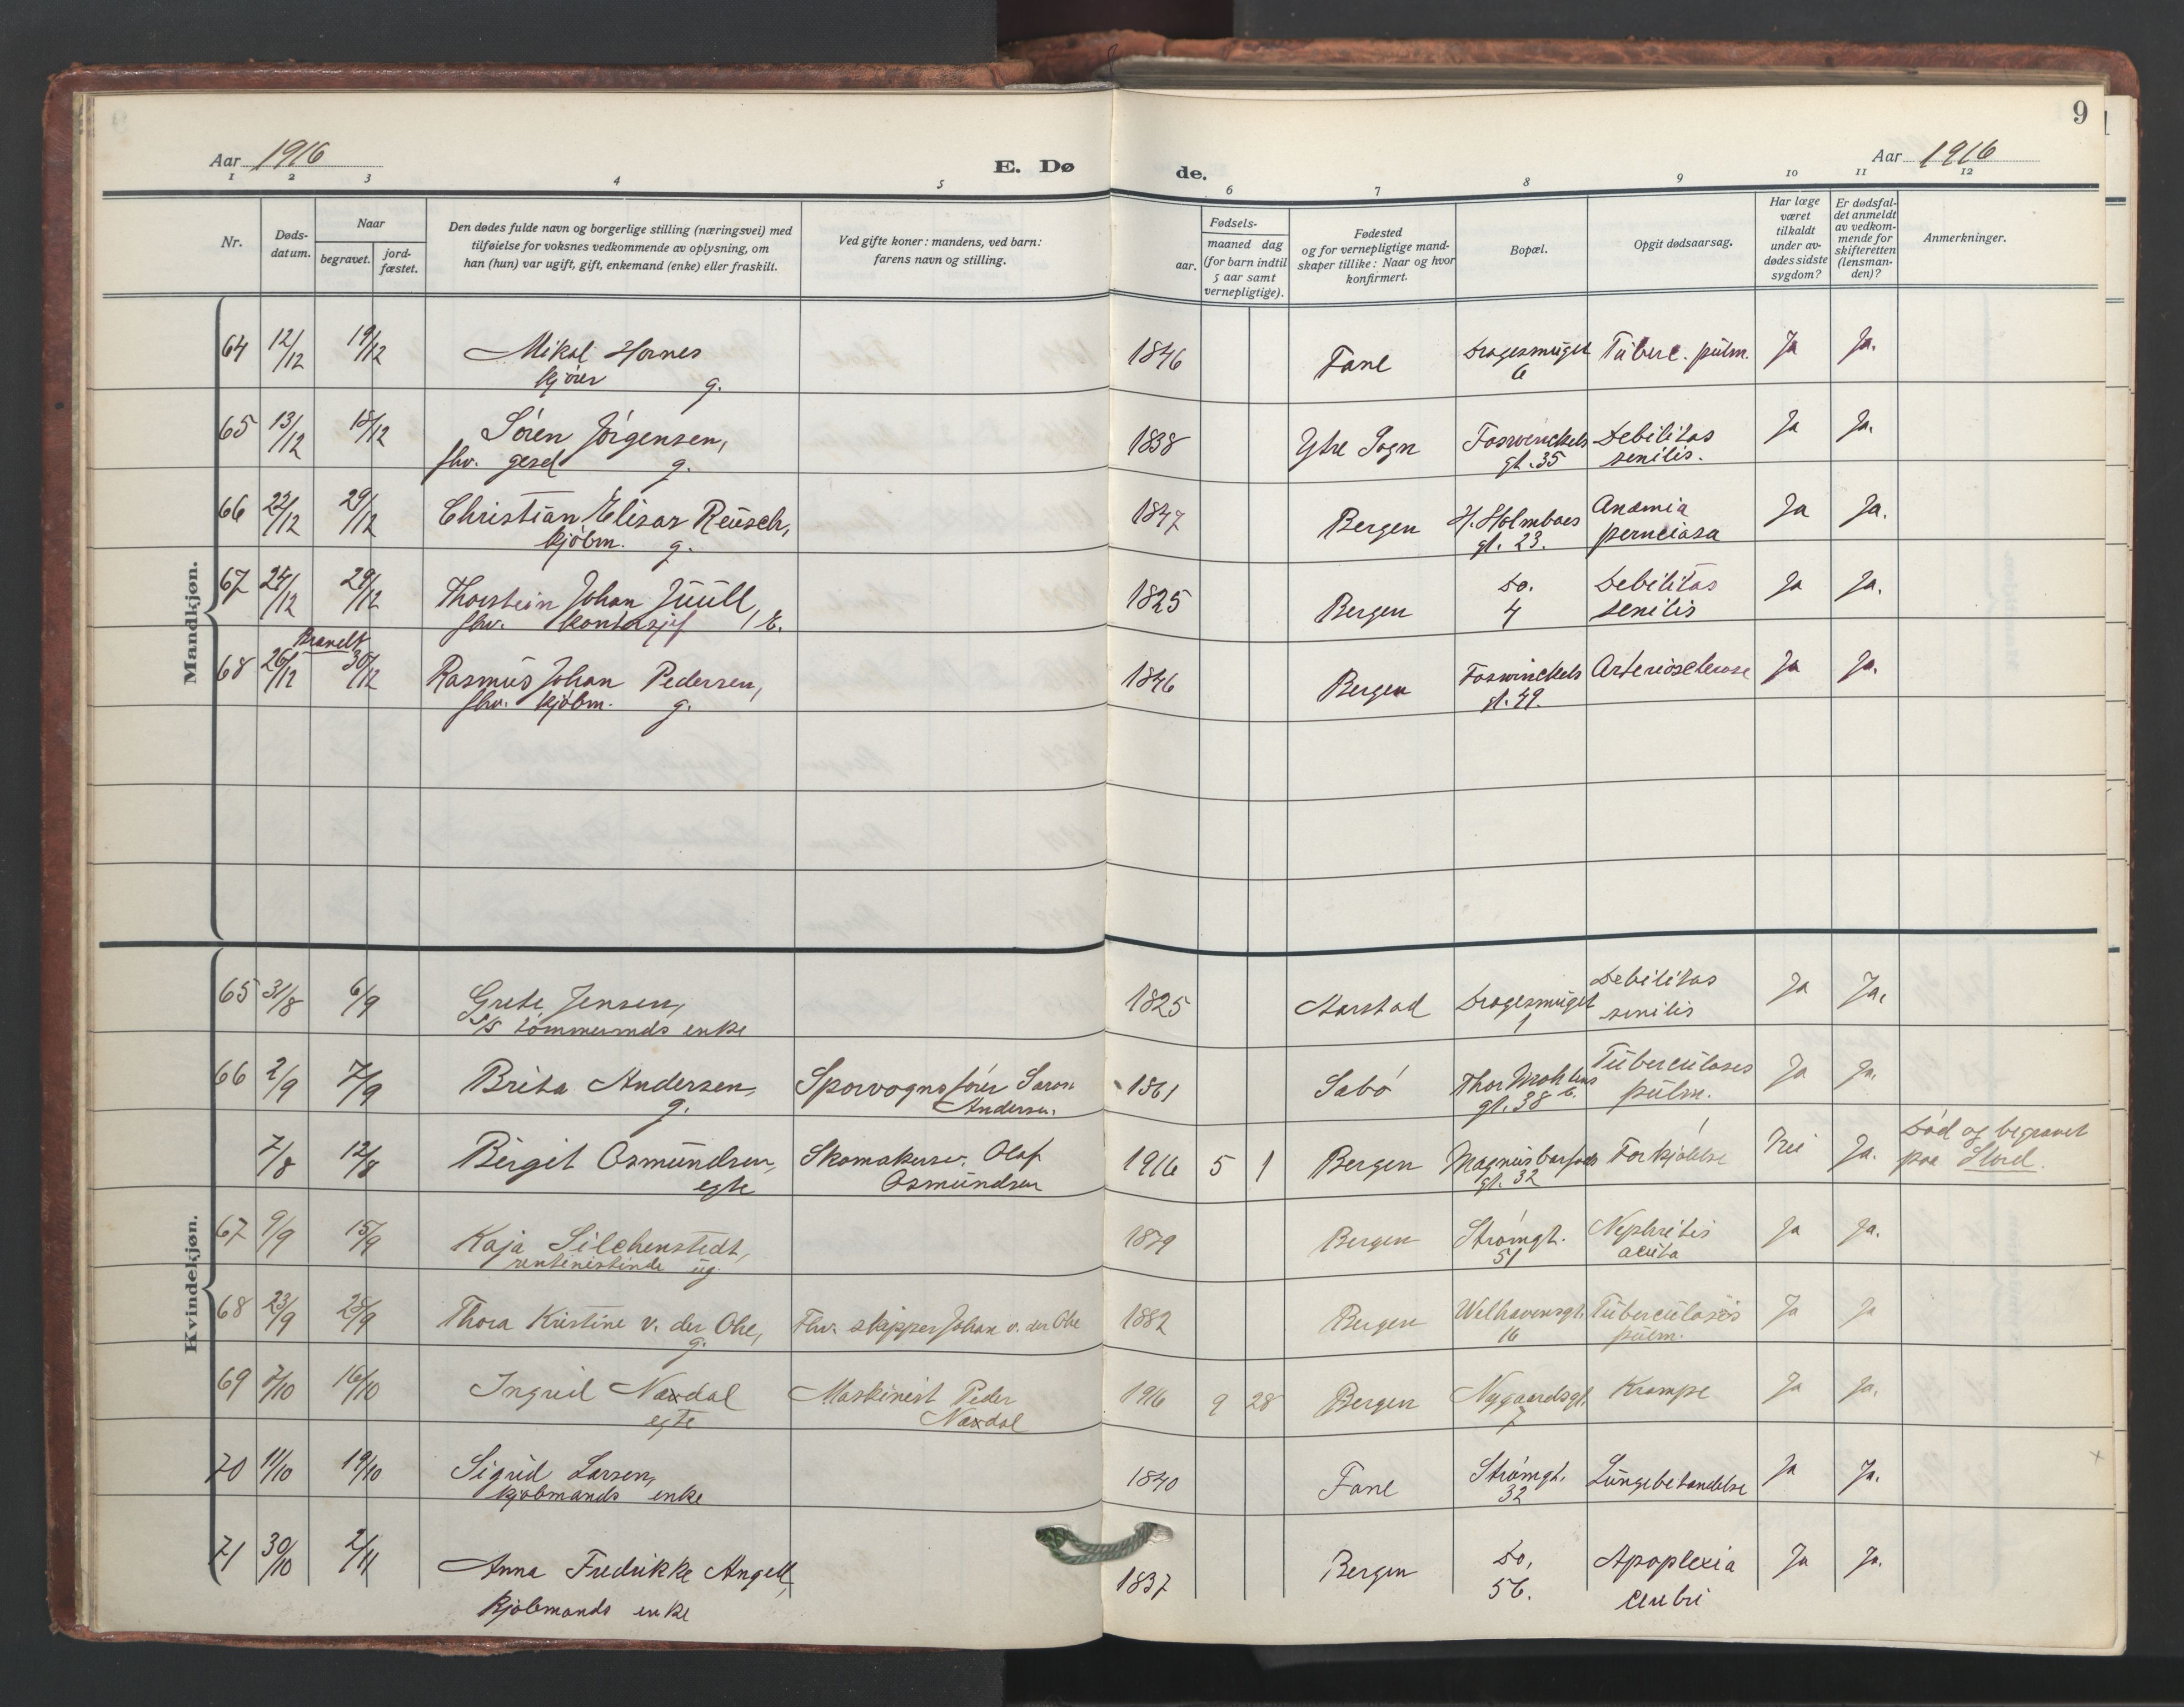 9
Aar 1916
E. Dø
de.
Aar 1916
1 2 3 4 5 6 7 8 9 10 11 12
Nr.
Døds-
datum.
Naar
begravet.
jord-
fæstet.
Den dødes fulde navn og borgerlige stilling (næringsvei) med
tilføielse for voksnes vedkommende av oplysning, om
han (hun) var ugift, gift, enkemand (enke) eller fraskilt.
Ved gifte koner: mandens, ved barn:
farens navn og stilling.
Fødsels-
aar.
maaned dag
(for barn indtil
5 aar samt
vernepligtige).
Fødested
og for vernepligtige mand-
skaper tillike: Naar og hvor
konfirmert.
Bopæl.
Opgit dødsaarsag.
Har læge
været
tilkaldt
under av-
dødes sidste
sygdom?
Er dødsfal-
det anmeldt
av vedkom-
mende for
skifteretten
(lensman-
den)?
Anmerkninger.
Mandkjøn.
64 12/12 19/12 Mikal Hornes 1846 Fane Dragesmuget Tuberc. pulm. Ja Ja.
kjører g. 6
65 13/12 18/12 Søren Jørgensen, 1838 Ytre Sogn Foswinckels Debilitas Ja Ja.
fhv. gesel g. gt. 35 senilis.
66 22/12 29/12 Christian Elisar Reusch, 1847 Bergen H. Holmboes Anæmia Ja Ja.
kjøbm. g. gt. 23. perniciosa
67 24/12 29/12 Thorstein Johan Juull, 1825 Bergen Do. Debilitas Ja Ja.
fhv. kontorsjef E. 4 senilis
Brandt
68 26/12 30/12 Rasmus Johan Pedersen, 1846 Bergen Foswinckels Arteriosclerose Ja Ja.
fhv. kjøbm. g. gt. 49.
Kvindekjøn.
65 31/8 6/9 Grete Jensen, 1825 Aarstad Dragesmuget Debilitas Ja Ja.
tømmermds enke 1 senilis
66 2/9 7/9 Brita Andersen, Sporvognsfører 1861 Sabø Thor Mohlens Tuberculoses Ja Ja.
g. Andersen. gt. 38 pulm.
7/8 12/8 Birgit Osmundsen, Skomakersv. Olaf 1916 5 1 Bergen Magnus Barfods Forkjølelse Nei Ja. Død og begravet
egte Osmundsen gt. 32 paa Stord.
67 9/9 15/9 Kaja Silchenstedt, 1879 Bergen Strømgt. Nephritis Ja Ja.
rentenistinde ug. 51 acuta
68 23/9 28/9 Thora Kristine v. der Ohe, Fhv. skipper Johan v. der Ohe 1882 Bergen Welhavensgt. Tuberculosis Ja Ja
g. 16 pulm.
69 7/10 16/10 Ingrid Naxdal Maskinist Peder 1916 9 28 Bergen Nygaardsgt. Krampe Ja Ja.
egte Naxdal 7
70 11/10 19/10 Sigrid Larsen, 1840 Fane Strømgt. Lungebetændelse Ja Ja.
kjøbmands enke 32
71 30/10 2/11 Anna Fredrikke Angell, 1837 Bergen Do. Apoplexia Ja Ja.
kjøbmands enke 56. cerebri